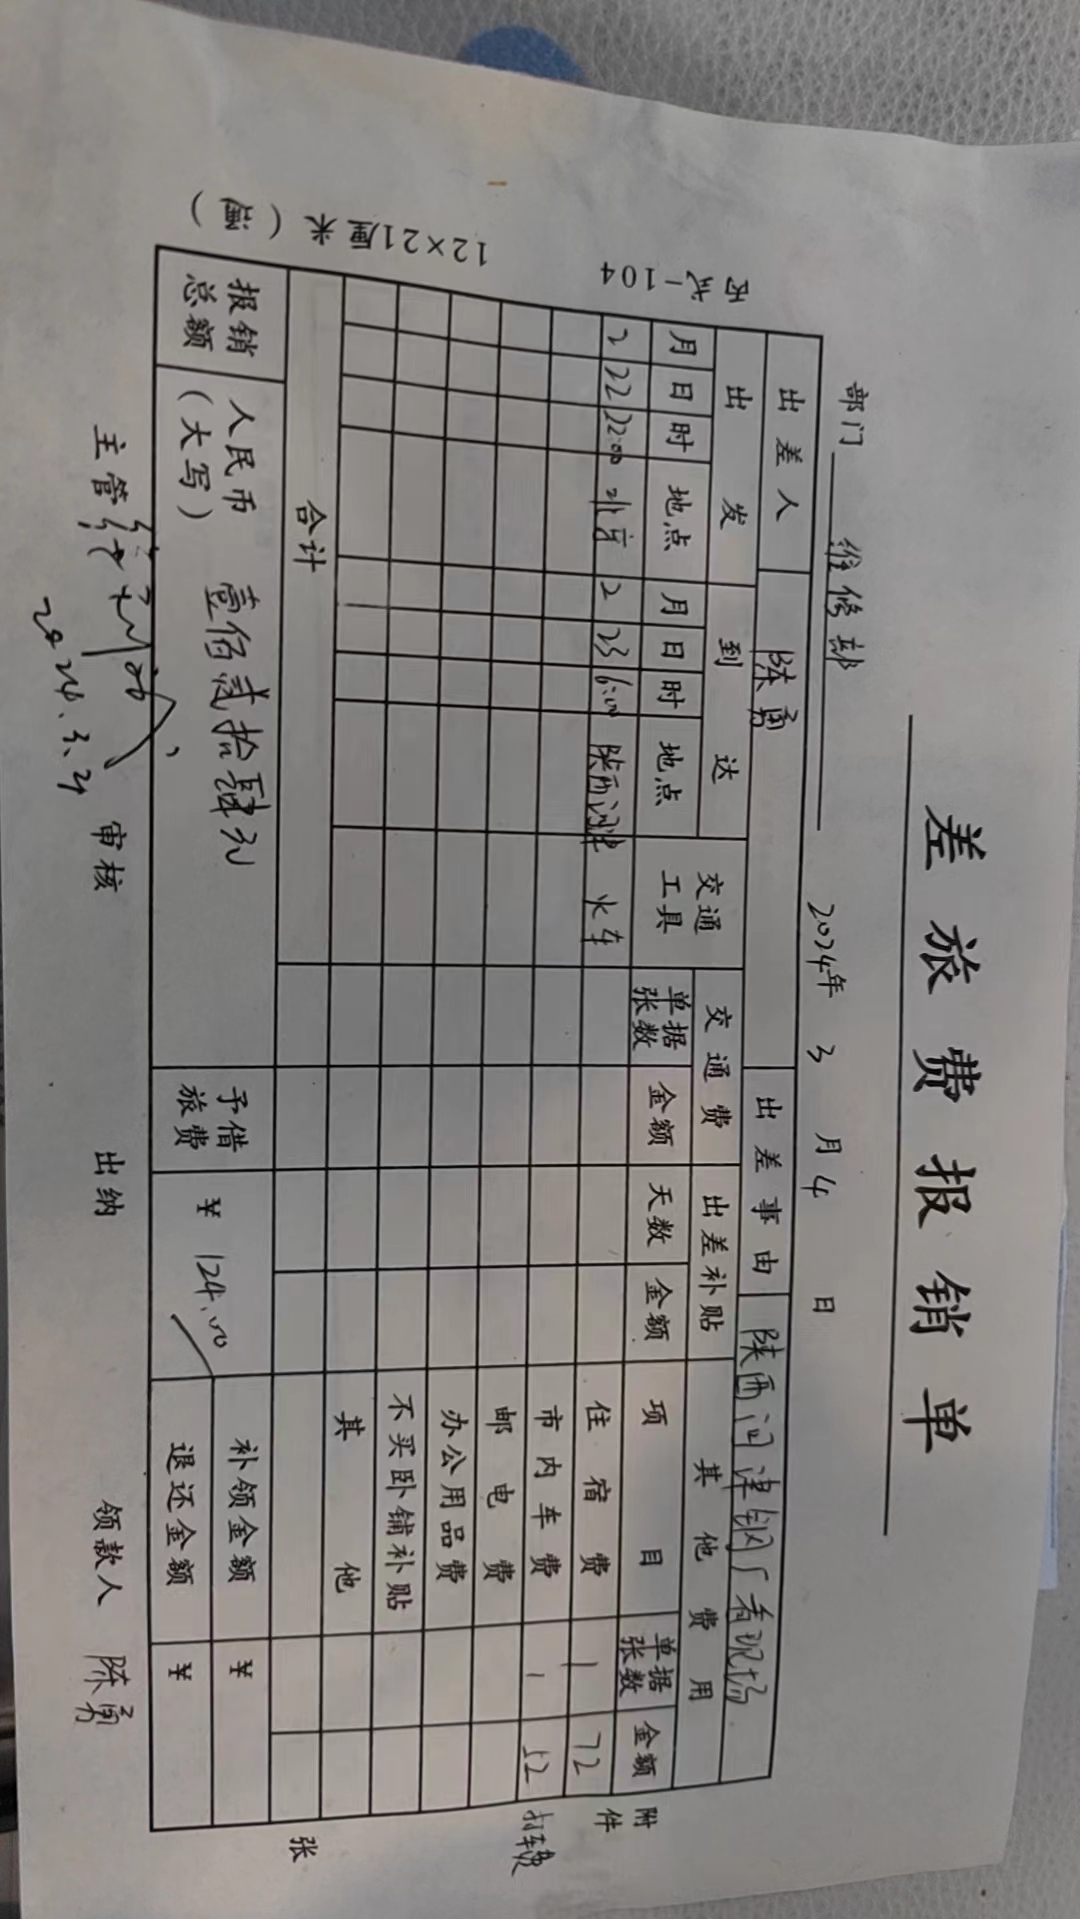 差旅费报销单
部门 维修部 2024年 3 月 4 日
出差人 陈勇 出差事由 陕西河津钢厂看现场
出发 到达 交通工具 交通费 出差补贴 其他费用
月 日 时 地点 月 日 时 地点 单据张数 金额 天数 金额 项目 单据张数 金额
2 22 22:00 北京 2 23 6:00 陕西河津 火车 住宿费 1 72
市内车费 1 52 打车费
邮电费
办公用品费
不买卧铺补贴
其他
合计
报销总额 人民币(大写) 壹佰贰拾肆元 予借旅费 ¥ 124.00 补领金额 ¥
退还金额 ¥
主管 审核 出纳 领款人 陈勇
2024.3.4
附件 张
丙式-104
12×21厘米(通)